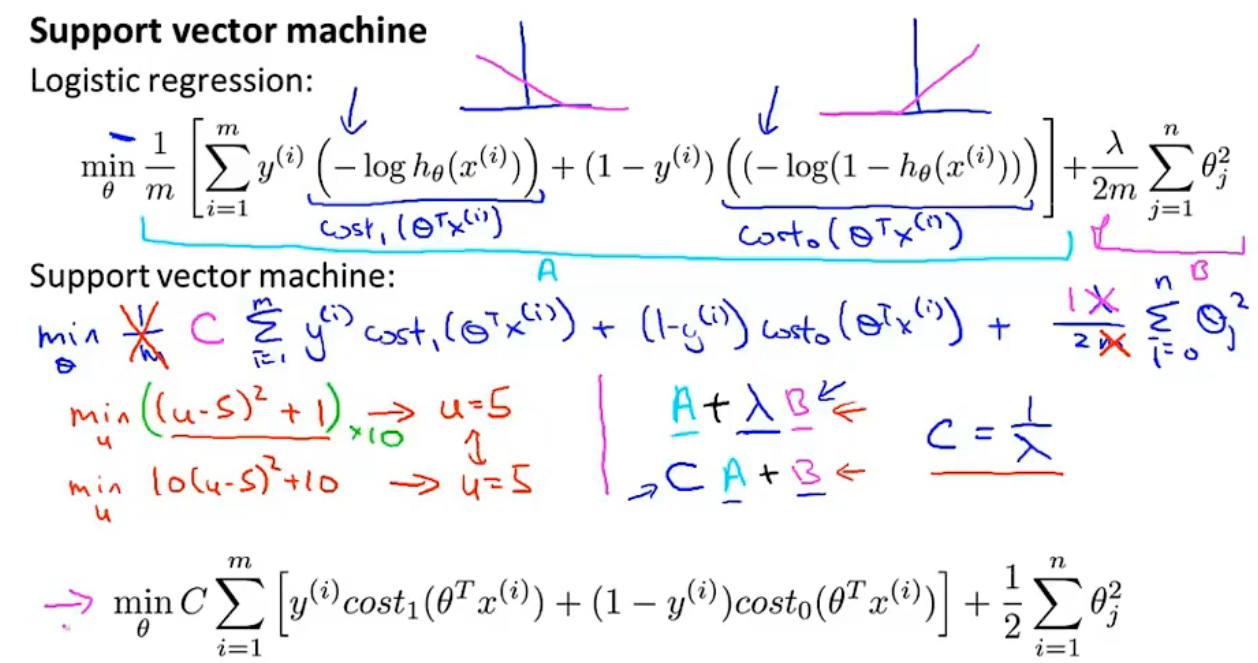 Support vector machine
Logistic regression:
min_θ 1/m [ Σ_{i=1}^{m} y^{(i)} (−log h_θ(x^{(i)})) + (1 − y^{(i)}) ((−log(1 − h_θ(x^{(i)}))) ] + λ/2m Σ_{j=1}^{n} θ_j^2
cost_1(θ^T x^{(i)}) cost_0(θ^T x^{(i)})
A B
Support vector machine:
min_θ 1/m C Σ_{i=1}^{m} y^{(i)} cost_1(θ^T x^{(i)}) + (1-y^{(i)}) cost_0(θ^T x^{(i)}) + 1 λ/2 m Σ_{i=0}^{n} θ_j^2
min_u ((u-5)^2 + 1) ×10 → u=5 A + λ B ←
↕ C = 1/λ
min_u 10(u-5)^2+10 → u=5 → C A + B ←
→ min_θ C Σ_{i=1}^{m} [ y^{(i)} cost_1(θ^T x^{(i)}) + (1 − y^{(i)}) cost_0(θ^T x^{(i)}) ] + 1/2 Σ_{i=1}^{n} θ_j^2